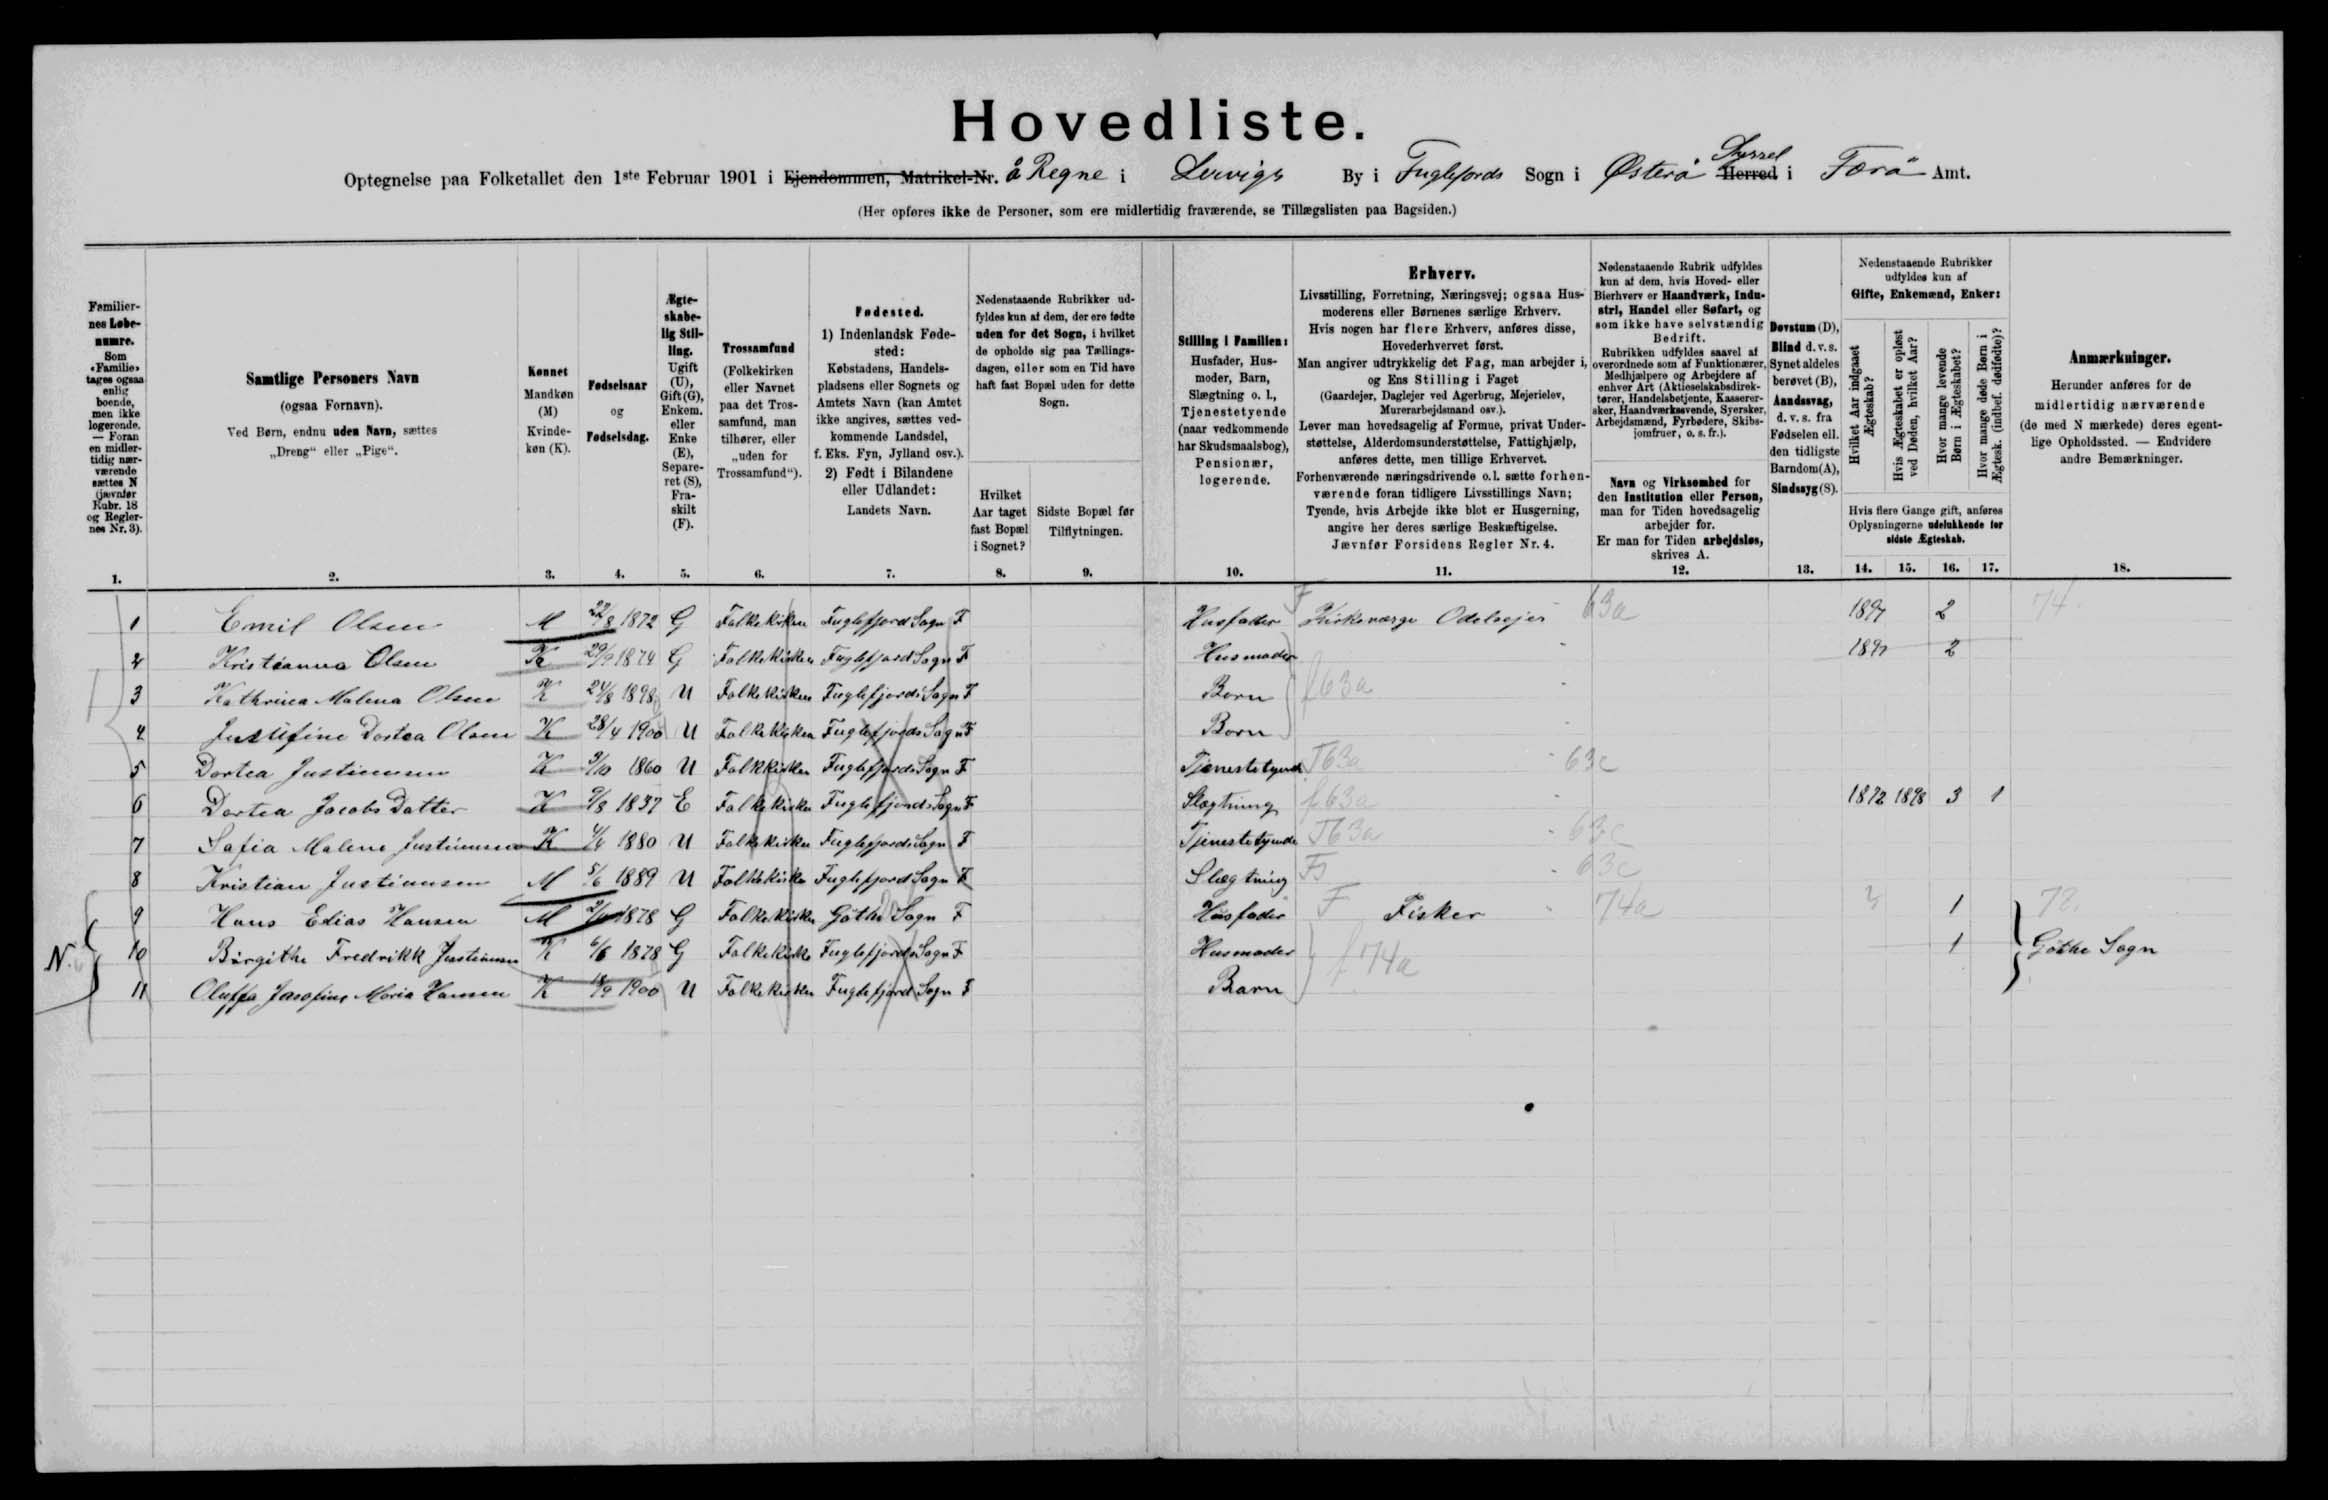 Hovedliste.
Optegnelse paa Folketallet den 1ste Februar 1901 i Ejendommen, Matrikel-Nr. å Regne i Lervigs By i Fuglefjords Sogn i Østerö Herred Syssel i Færö Amt.
(Her opføres ikke de Personer, som ere midlertidig fraværende, se Tillægslisten paa Bagsiden.)
Familiernes Løbenumre.
Som «Familie» tages ogsaa enlig boende, men ikke logerende. — Foran en midlertidig nærværende sættes N (jævnfør Rubr. 18 og Reglernes Nr. 3).
1.
Samtlige Personers Navn
(ogsaa Fornavn).
Ved Børn, endnu uden Navn, sættes
„Dreng“ eller „Pige“.
2.
Kønnet
Mandkøn (M)
Kvindekøn (K).
3.
Fødselsaar
og
Fødselsdag.
4.
Ægteskabelig Stilling.
Ugift (U), Gift (G), Enkem. eller Enke (E), Separeret (S), Fraskilt (F).
5.
Trossamfund
(Folkekirken eller Navnet paa det Trossamfund, man tilhører, eller „uden for Trossamfund“).
6.
Fødested.
1) Indenlandsk Fødested:
Købstadens, Handelspladsens eller Sognets og Amtets Navn (kan Amtet ikke angives, sættes vedkommende Landsdel, f. Eks. Fyn, Jylland osv.).
2) Født i Bilandene eller Udlandet:
Landets Navn.
7.
Nedenstaaende Rubrikker udfyldes kun af dem, der ere fødte uden for det Sogn, i hvilket de opholde sig paa Tællingsdagen, eller som en Tid have haft fast Bopæl uden for dette Sogn.
Hvilket Aar taget fast Bopæl i Sognet?
8.
Sidste Bopæl før Tilflytningen.
9.
Stilling i Familien:
Husfader, Husmoder, Barn, Slægtning o. l., Tjenestetyende (naar vedkommende har Skudsmaalsbog), Pensionær, logerende.
10.
Erhverv.
Livsstilling, Forretning, Næringsvej; ogsaa Husmoderens eller Børnenes særlige Erhverv.
Hvis nogen har flere Erhverv, anføres disse, Hovederhvervet først.
Man angiver udtrykkelig det Fag, man arbejder i, og Ens Stilling i Faget
(Gaardejer, Daglejer ved Agerbrug, Mejerielev, Murerarbejdsmand osv.).
Lever man hovedsagelig af Formue, privat Understøttelse, Alderdomsunderstøttelse, Fattighjælp, anføres dette, men tillige Erhvervet.
Forhenværende næringsdrivende o. l. sætte forhenværende foran tidligere Livsstillings Navn;
Tyende, hvis Arbejde ikke blot er Husgerning, angive her deres særlige Beskæftigelse.
Jævnfør Forsidens Regler Nr. 4.
11.
Nedenstaaende Rubrik udfyldes kun af dem, hvis Hoved- eller Bierhverv er Haandværk, Industri, Handel eller Søfart, og som ikke have selvstændig Bedrift.
Rubrikken udfyldes saavel af overordnede som af Funktionærer, Medhjælpere og Arbejdere af enhver Art (Aktieselskabsdirektører, Handelsbetjente, Kasserersker, Haandværkssvende, Syersker, Arbejdsmænd, Fyrbødere, Skibsjomfruer, o. s. fr.).
Navn og Virksomhed for den Institution eller Person, man for Tiden hovedsagelig arbejder for.
Er man for Tiden arbejdsløs, skrives A.
12.
Døvstum (D), Blind d. v. s. Synet aldeles berøvet (B), Aandssvag, d. v. s. fra Fødselen ell. den tidligste Barndom (A), Sindssyg (S).
13.
Nedenstaaende Rubrikker udfyldes kun af
Gifte, Enkemænd, Enker:
Hvilket Aar indgaaet Ægteskab?
Hvis Ægteskabet er opløst ved Døden, hvilket Aar?
Hvor mange levende Børn i Ægteskabet?
Hvor mange døde Børn i Ægtesk. (indbef. dødfødte)?
Hvis flere Gange gift, anføres Oplysningerne udelukkende for sidste Ægteskab.
14. 15. 16. 17.
Anmærkninger.
Herunder anføres for de midlertidig nærværende (de med N mærkede) deres egentlige Opholdssted. — Endvidere andre Bemærkninger.
18.
1 Emil Olsen M 22/8 1872 G Folkekirken Fuglefjord Sogn F Husfader F Kirkeværge Odelsejer 63a 2 74
2 Kristianna Olsen K 29/9 1874 G Folkekirken Fuglefjord Sogn F Husmoder 2
3 Kathrina Malena Olsen K 24/8 1898 U Folkekirken Fuglefjords Sogn F Born f63a
4 Justifine Dortea Olsen K 28/4 1900 U Folkekirken Fuglefjords Sogn F Born
5 Dortea Justinussen K 9/10 1860 U Folkkirken Fuglefjords Sogn F Tjenestetyende T63a 63c
6 Dortea Jacobs Datter K 9/8 1837 E Folkekirken Fuglefjords Sogn F Slægtning f63a 1872 1898 3 1
7 Safia Malene Justinussen K 1880 U Folkekirken Fuglefjords Sogn F Tjenestetyende T63a 63c
8 Kristian Justinussen M 5/6 1889 U Folkekirken Fuglefjord Sogn F Slægtning 63c
9 Hans Edias Hansen M 1878 G Folkekirken Göthe Sogn F Husfader F Fisker 74a 1 72.
N. 10 Birgithe Fredrikk Justinussen K 6/6 1878 G Folkekirke Fuglefjords Sogn F Husmoder f74a 1 Göthe Sogn
11 Oluffa Josofine Maria Hansen K 18/9 1900 U Folkekirken Fuglefjord Sogn F Barn